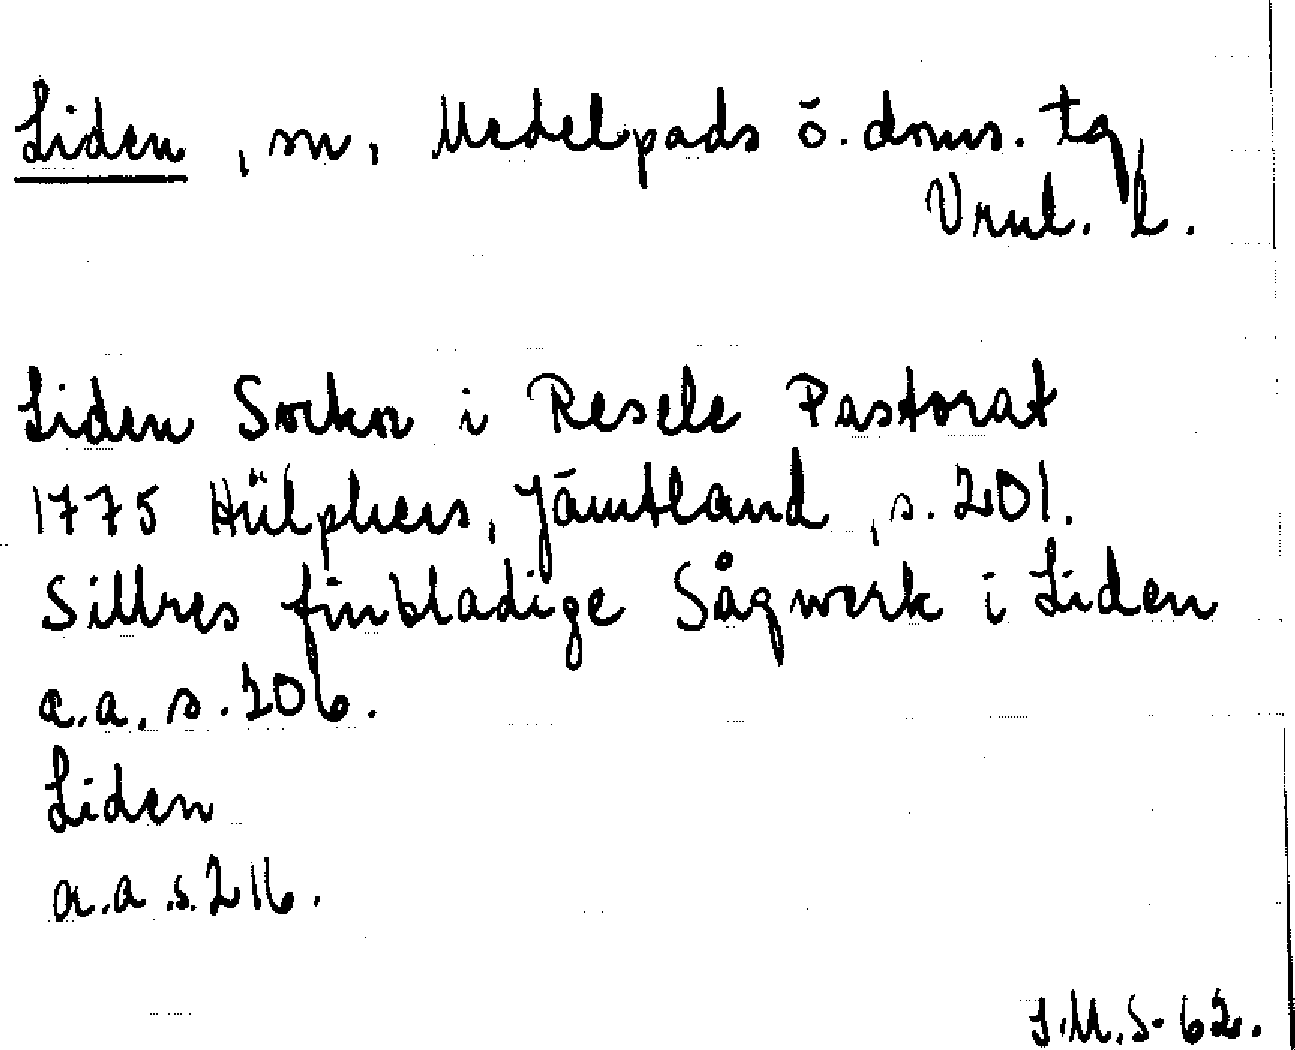 Liden, sn, Medelpads ö. doms. tg,
Vrnl. l.
Liden Sockn i Resele Pastorat
1775 Hülphers, Jämtland, s. 201.
Sillres finbladige Sågwerk i Liden
a.a. s. 206.
Liden
a.a s. 216.
I.M.S- 62.